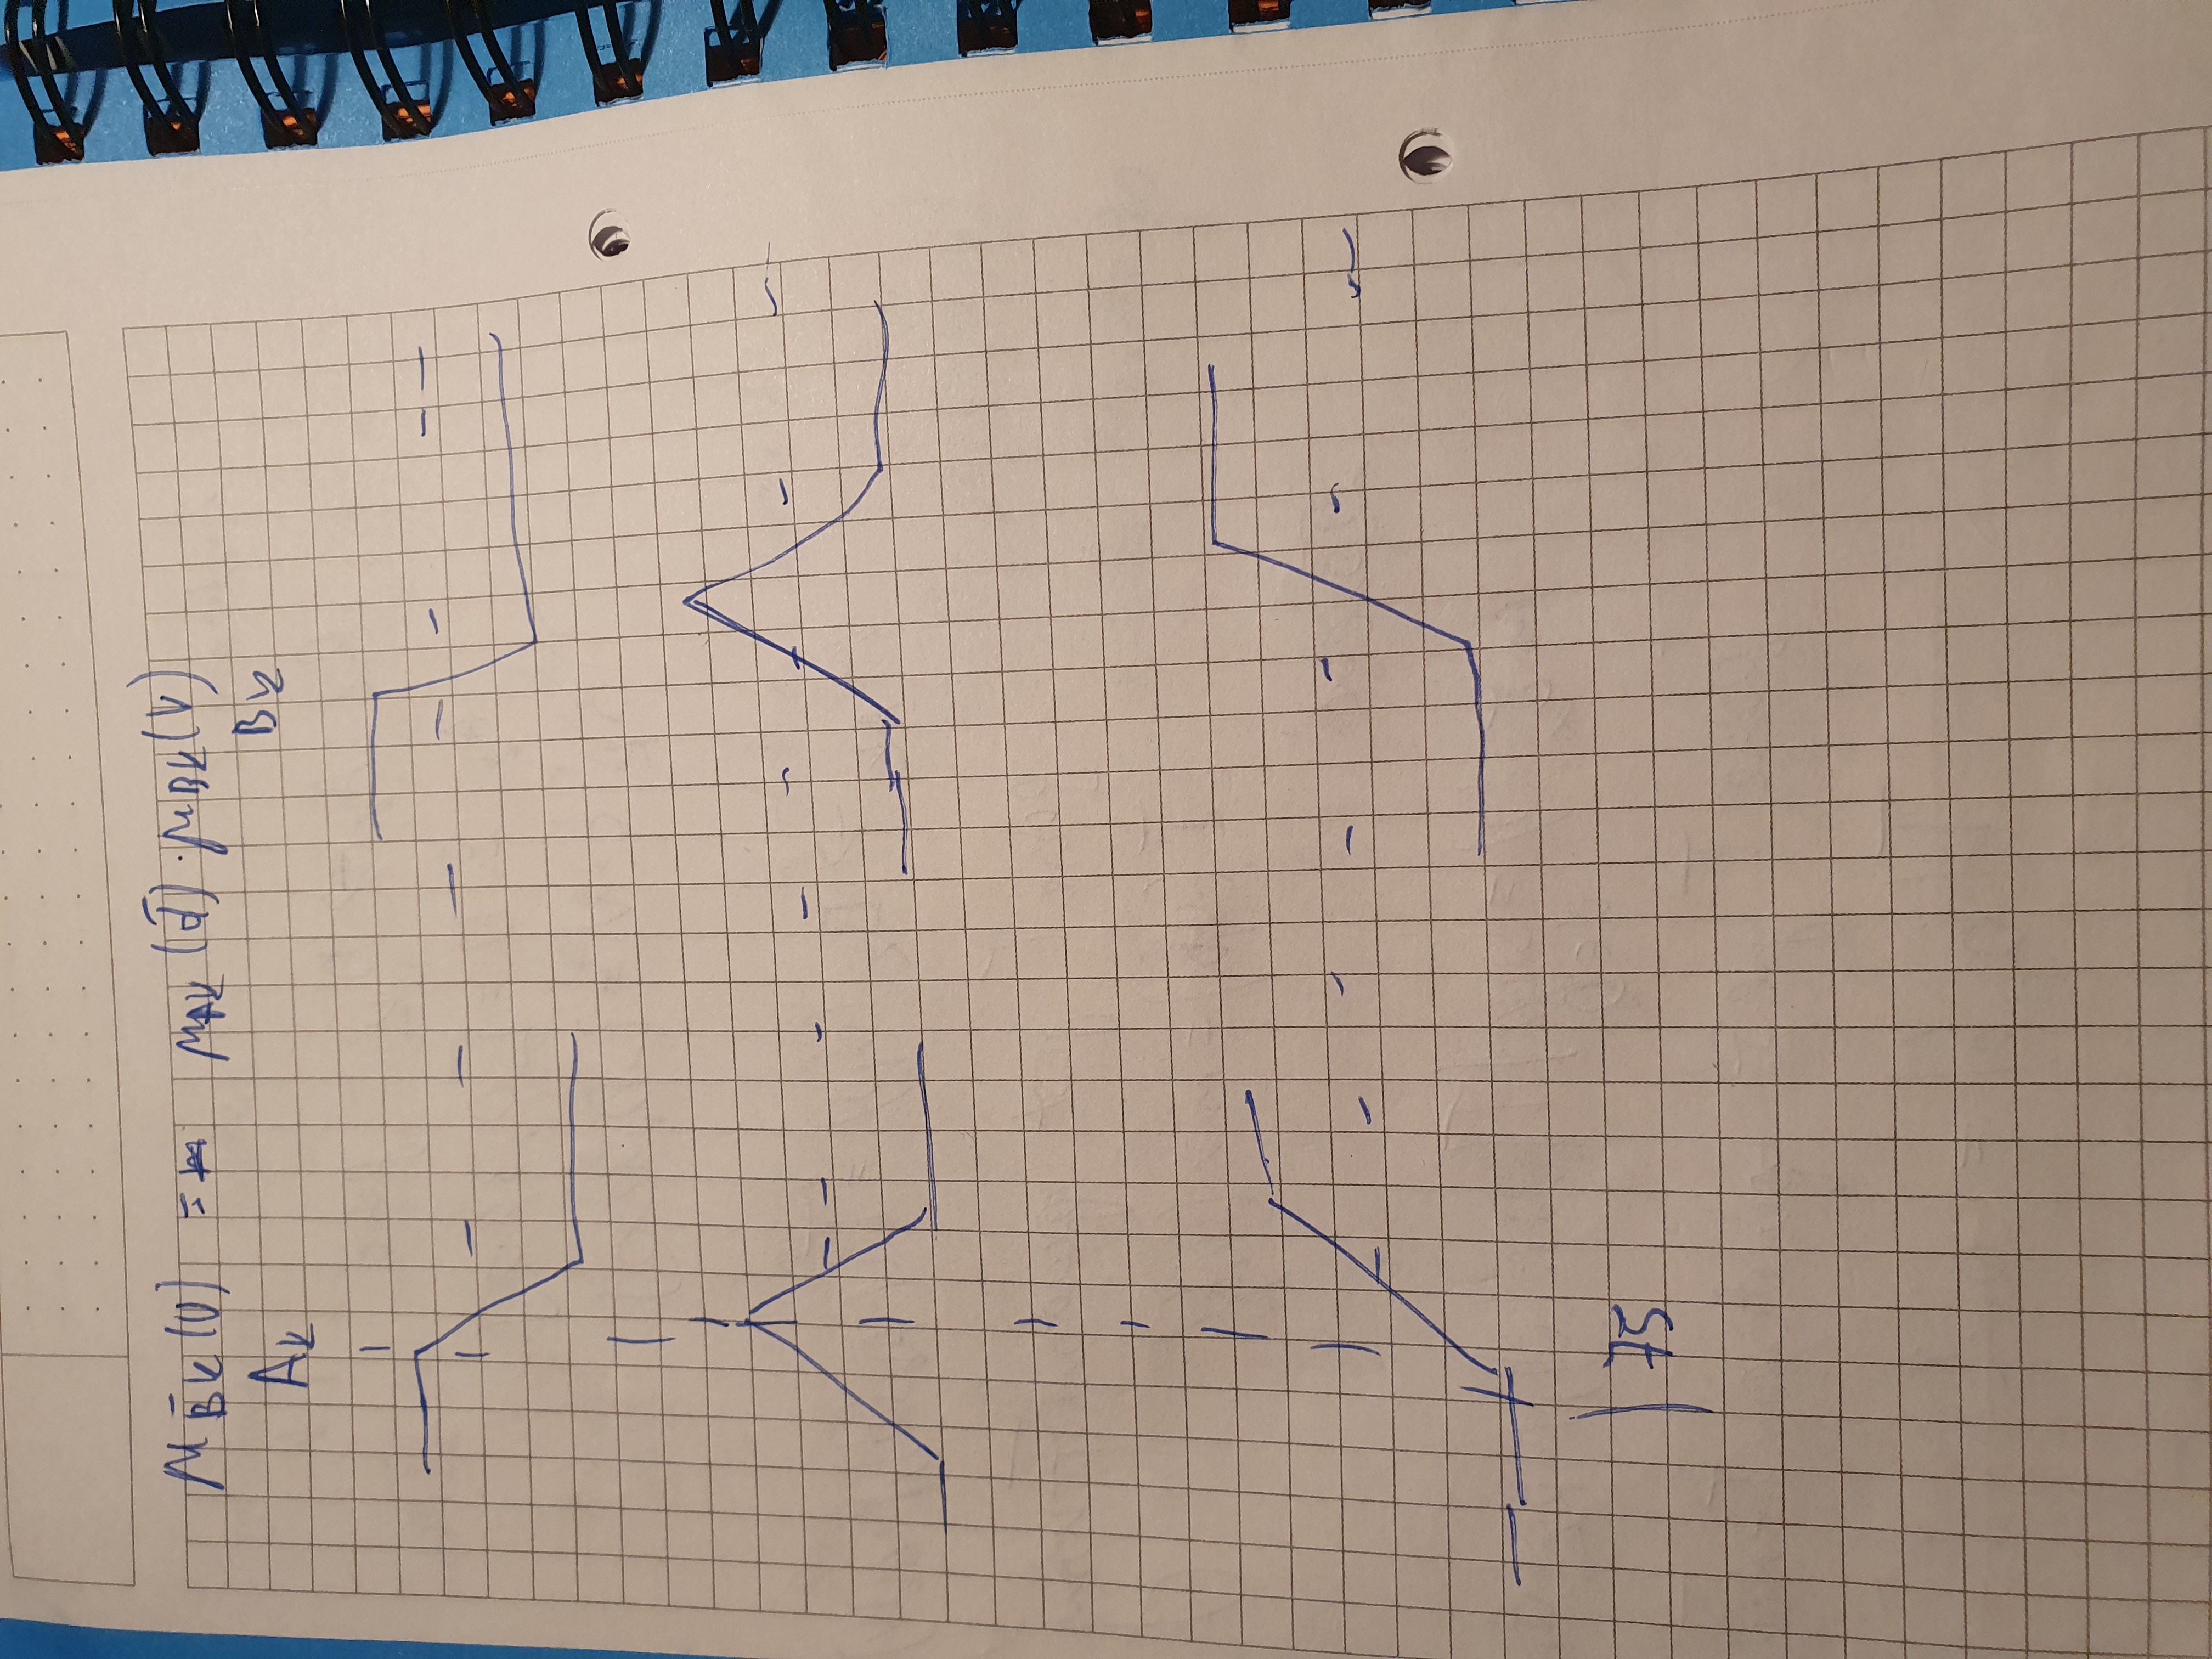 μ B̄k(v) = μAk (d̄) · μBk(v)
Ak Bk
75